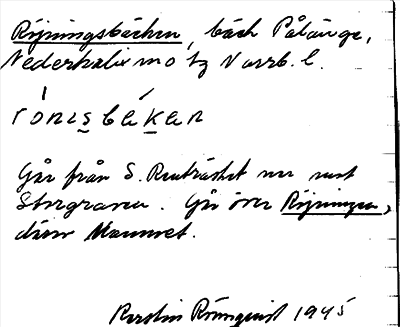 Röjningsbäcken, bäck Pålänge,
Nederkalix sn o tg Norrb. l.
rönisbäkan
Går från S. Renträsket ner mot
Storgraven. Går över Röjningen,
därav namnet.
Kerstin Rönnqvist 1945